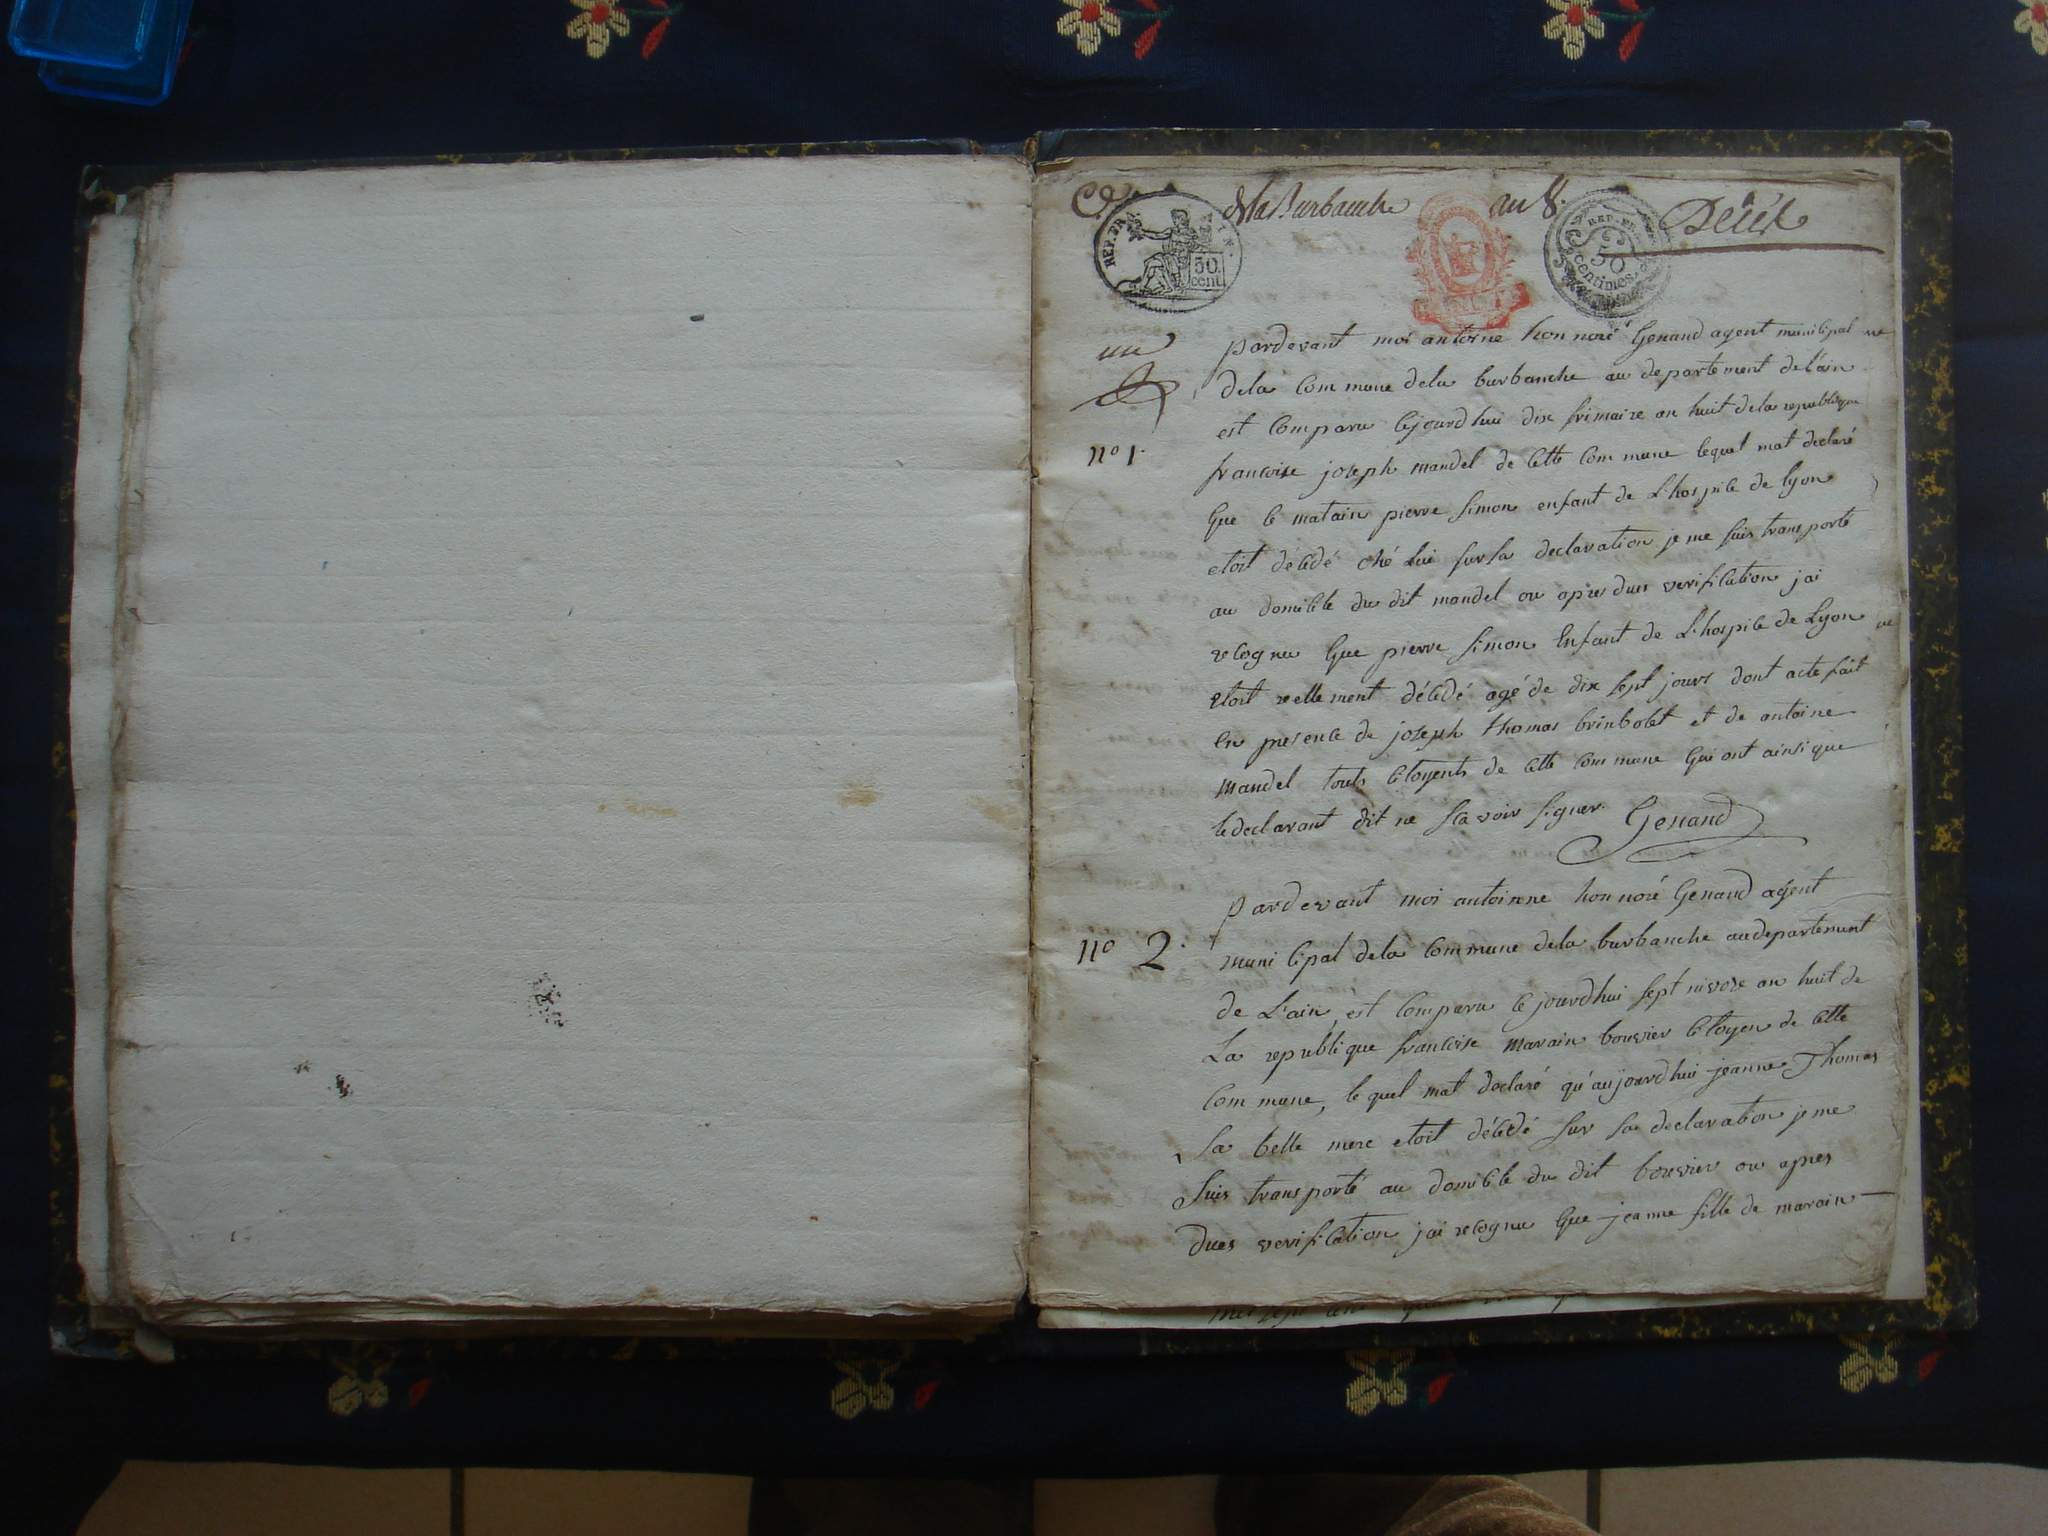 Cne de la Burbanche an 8. Décès
REP. FRA
50 cent.
REP. FRA
50 centimes
un
pardevant moi antoine honnoré Genand agent municipal
dela commune dela burbanche au departement de l'ain
est comparu cejourdhui dix frimaire an huit de la republique
n° 1.
francoise joseph mandel de cette commune lequel mat declaré
que ce matain pierre simon enfant de L'hospice de lyon
etoit décédé ché lui sur sa declaration je me suis transporté
au domicile du dit mandel ou apres dues verification jai
recognu que pierre simon enfant de L'hospice de Lyon
etoit reellement décédé agé de dix sept jours dont acte fait
en presence de joseph thomas brinbolet et de antoine
mandel touts citoyents de cette commune qui ont ainsi que
le declarant dit ne scavoir signer. Genand
pardevant moi antoinne honnoré Genand agent
n° 2.
municipal dela commune dela burbanche au departement
de L'ain, est comparu cejourdhui sept nivose an huit de
La republique francoise marain bouvier citoyen de cette
commune, le quel mat declaré qu'aujourdhui jeanne Thomas
sa belle mere etoit décédé sur sa declaration je me
suis transporté au domicile du dit bouvier ou apres
dues verification jai recognu que jeanne fille de marain